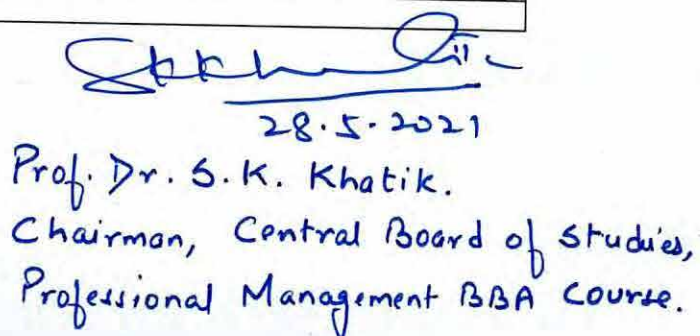 SKKhatik
28.5.2021
Prof. Dr. S.K. Khatik.
Chairman, Central Board of Studies,
Professional Management BBA Course.